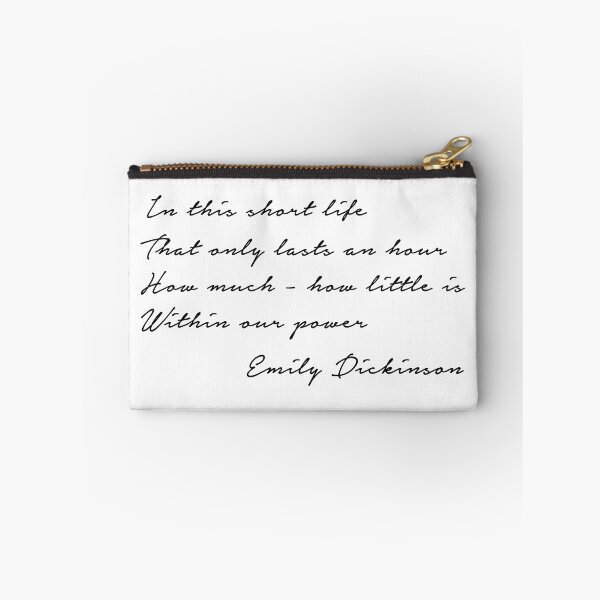 In this short life
That only lasts an hour
How much - how little is
Within our power
Emily Dickinson